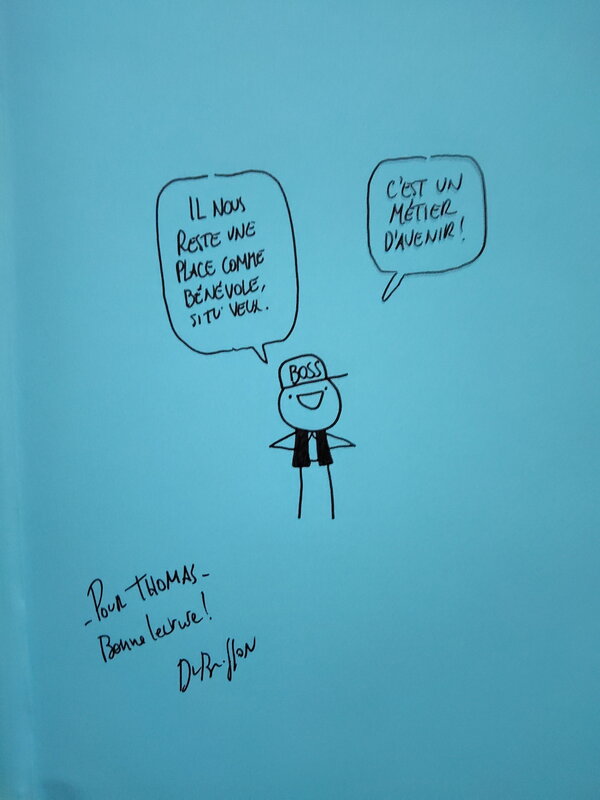 IL NOUS
RESTE UNE
PLACE COMME
BÉNÉVOLE,
SI TU VEUX.
C'EST UN
MÉTIER
D'AVENIR !
BOSS
-POUR THOMAS-
Bonne lecture !